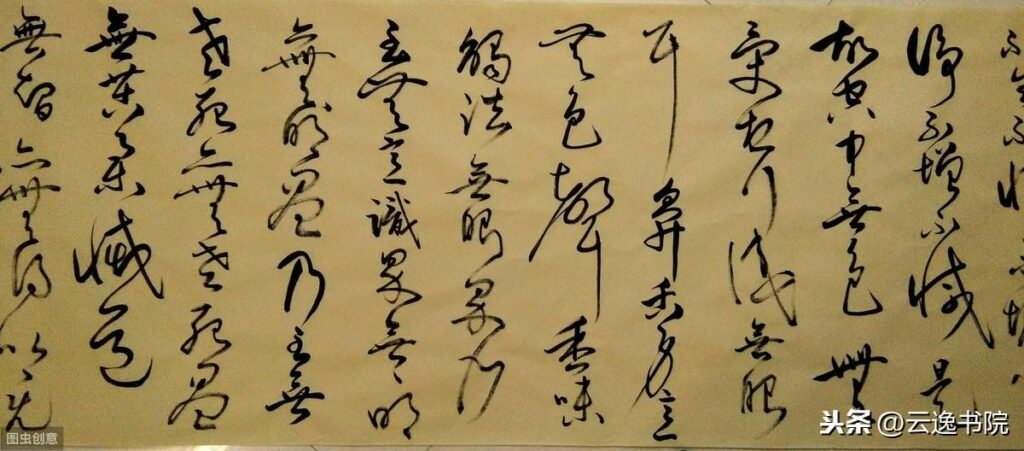 不生不
淨不增不減是
故空中無色無
受想行識無眼
耳鼻舌身意
無色聲香味
觸法無眼界乃
至無意識界無明
無明盡乃至無
老死亦無老死盡
無苦集滅道
無智亦無得以无
图虫创意
头条@云逸书院